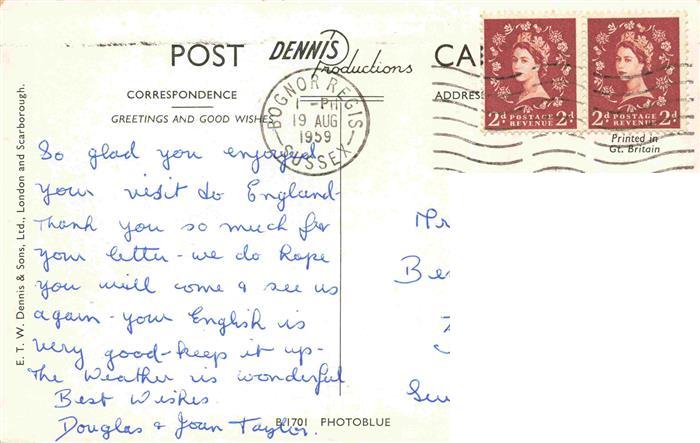 POST DENNIS Productions CA
CORRESPONDENCE
ADDRES
GREETINGS AND GOOD WISHES
BOGNOR REGIS
1-PM
19 AUG
1959
SUSSEX
2d POSTAGE REVENUE 2d
2d POSTAGE REVENUE 2d
Printed in
Gt. Britain
E. T. W. Dennis & Sons, Ltd., London and Scarborough.
So glad you enjoyed
your visit to England-
Thank you so much for
your letter - we do hope
you will come & see us
again - your English is
very good - keep it up -
The Weather is wonderful
Best Wishes
Douglas & Joan Taylor.
B.1701 PHOTOBLUE
Mr
Be